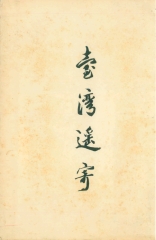 臺灣遙寄